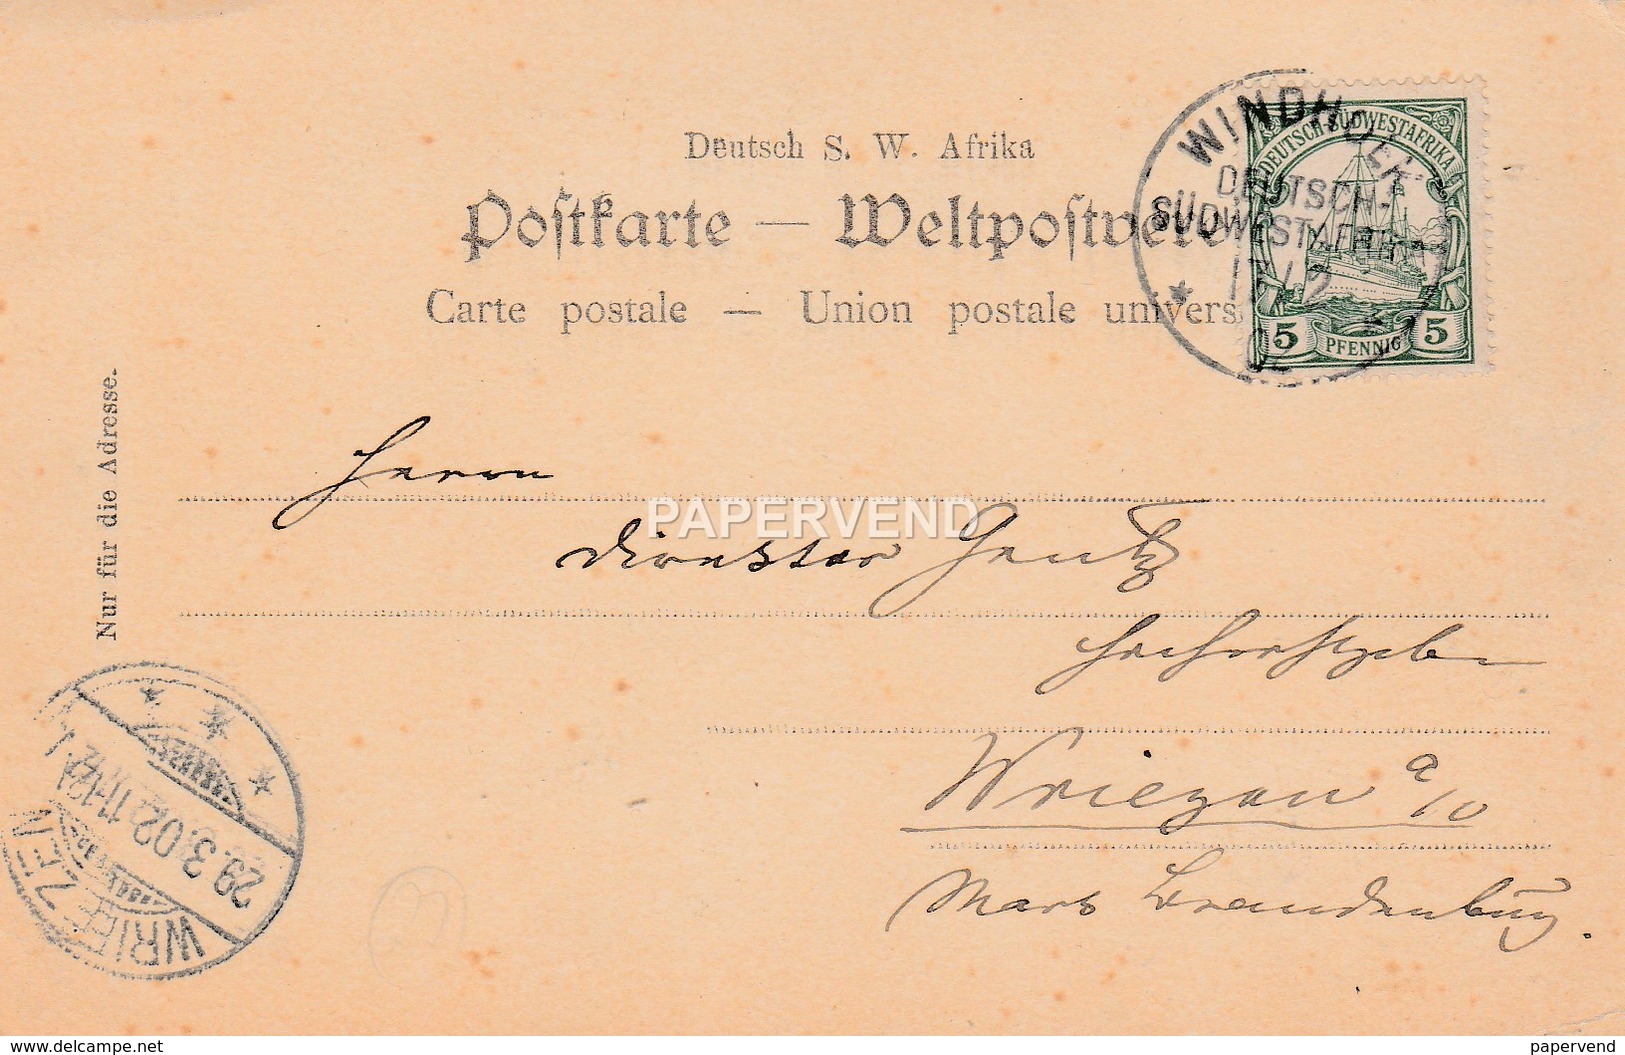 Deutsch S. W. Afrika
Postkarte — Weltpostvere
Carte postale — Union postale univers
WINDHOEK
DEUTSCH-
SÜDWESTAFRIKA
02
DEUTSCH-SÜDWESTAFRIKA
5 PFENNIG 5
Nur für die Adresse.
Herrn
PAPERVEND
Direktor Gentz
Wriezen a/O
Mark Brandenburg.
WRIEZEN
29.3.02 11-12V.
www.delcampe.net
papervend